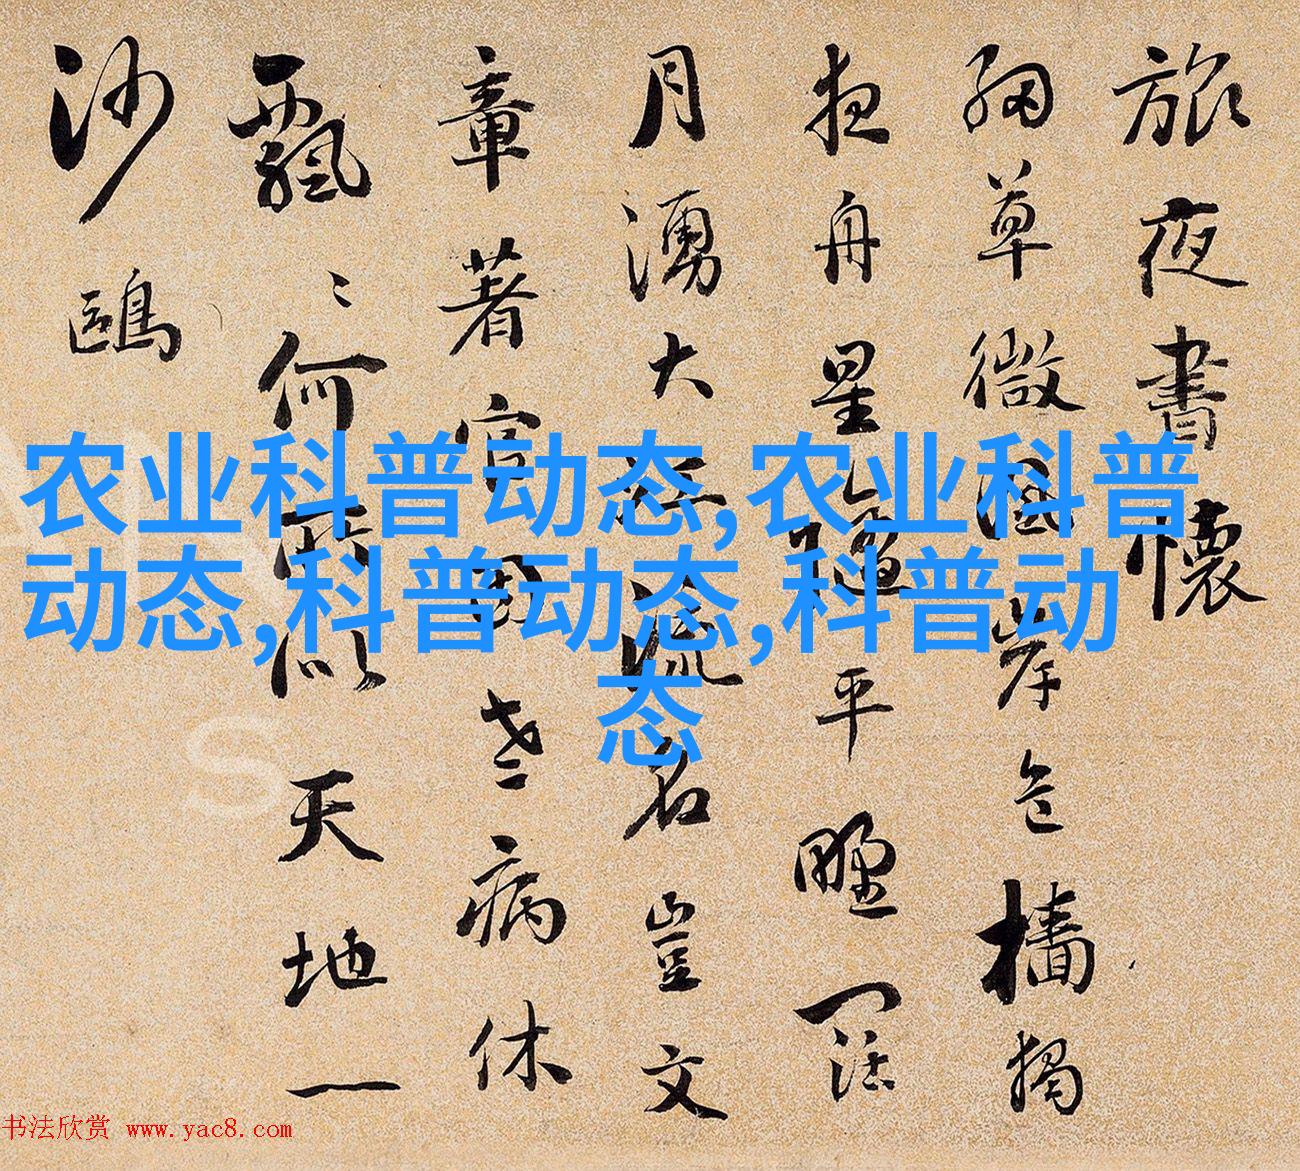 旅夜書懷
細草微風岸危檣獨
夜舟星隨平野闊
月湧大江流名豈文
章著官因老病休
飄〻何所似天地一
沙鷗
农业科普动态,农业科普
动态,科普动态,科普动
态
书法欣赏 www.yac8.com